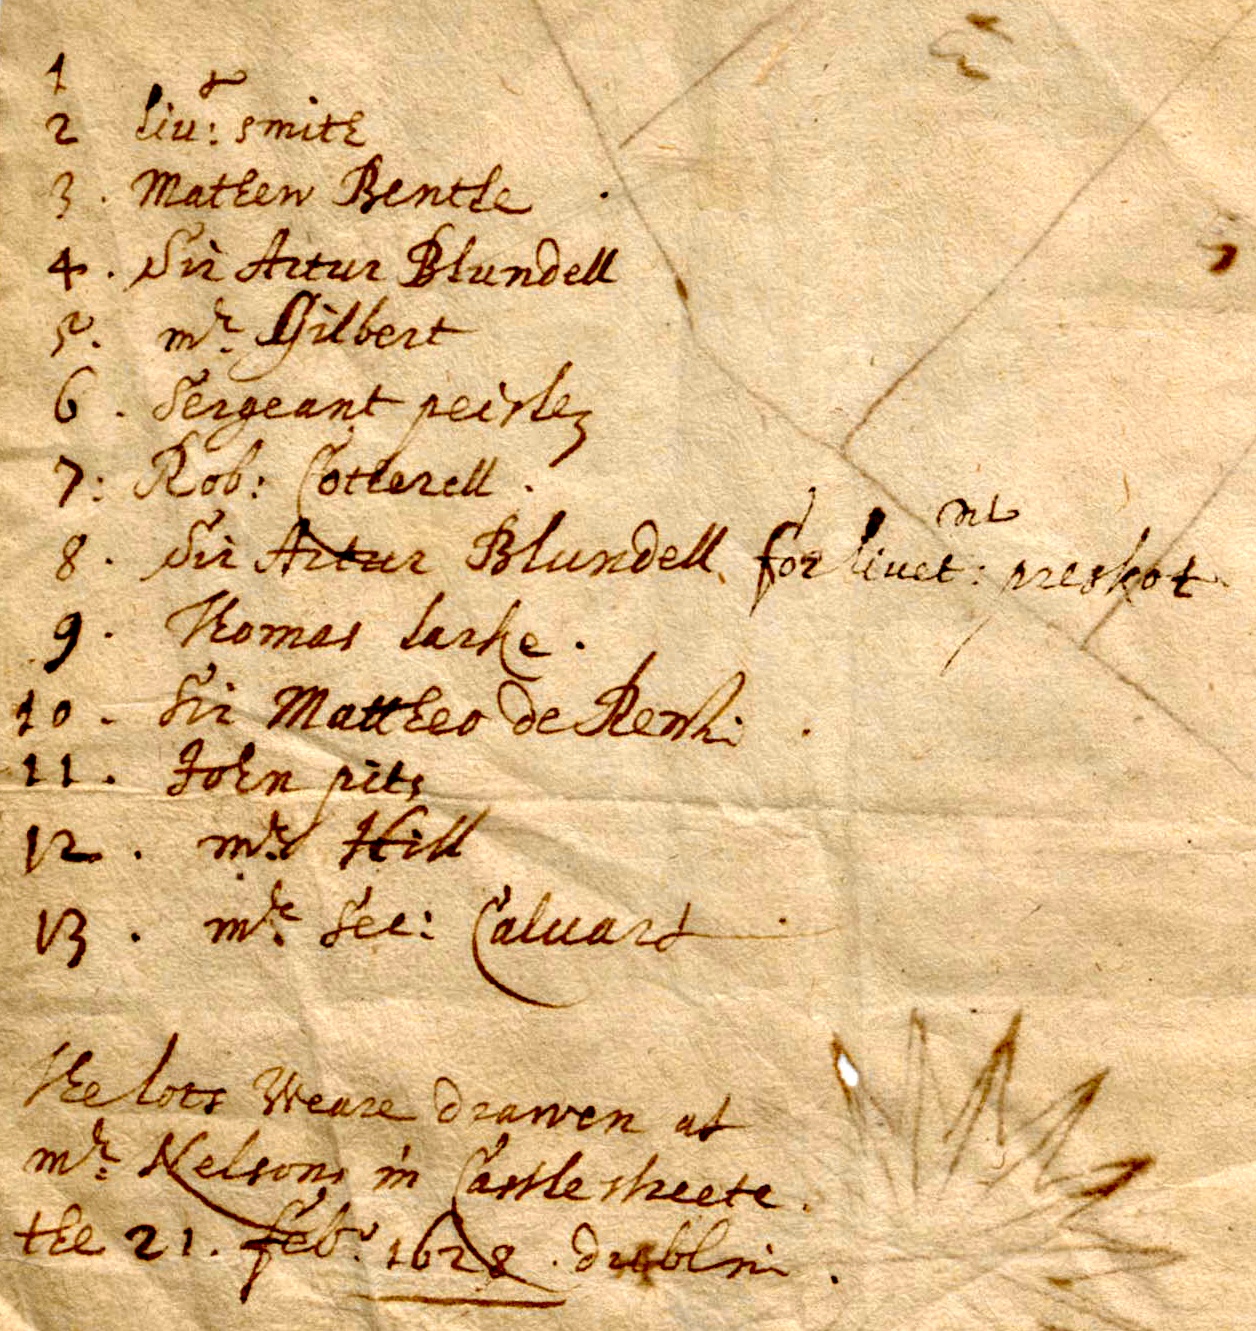 1
2 Liu:r smith
3 . Mathew Benthe .
4 . Sir Artur Blundell
5 . mr: Gilbert
6 . Sergeant peisley
7 : Rob: Cotterell .
8 . Sir Artur Blundell, for liuet:nt preskot
9 . Thomas larke .
10 . Sir Mattheo de Renzi .
11 . John pits
12 . mr: Hill
13 . mr: Sec: Caluart .
The lots Weare drawen at
mr: Nelsons in Castlestreete .
the 21 . febr: 1628 . dublin .